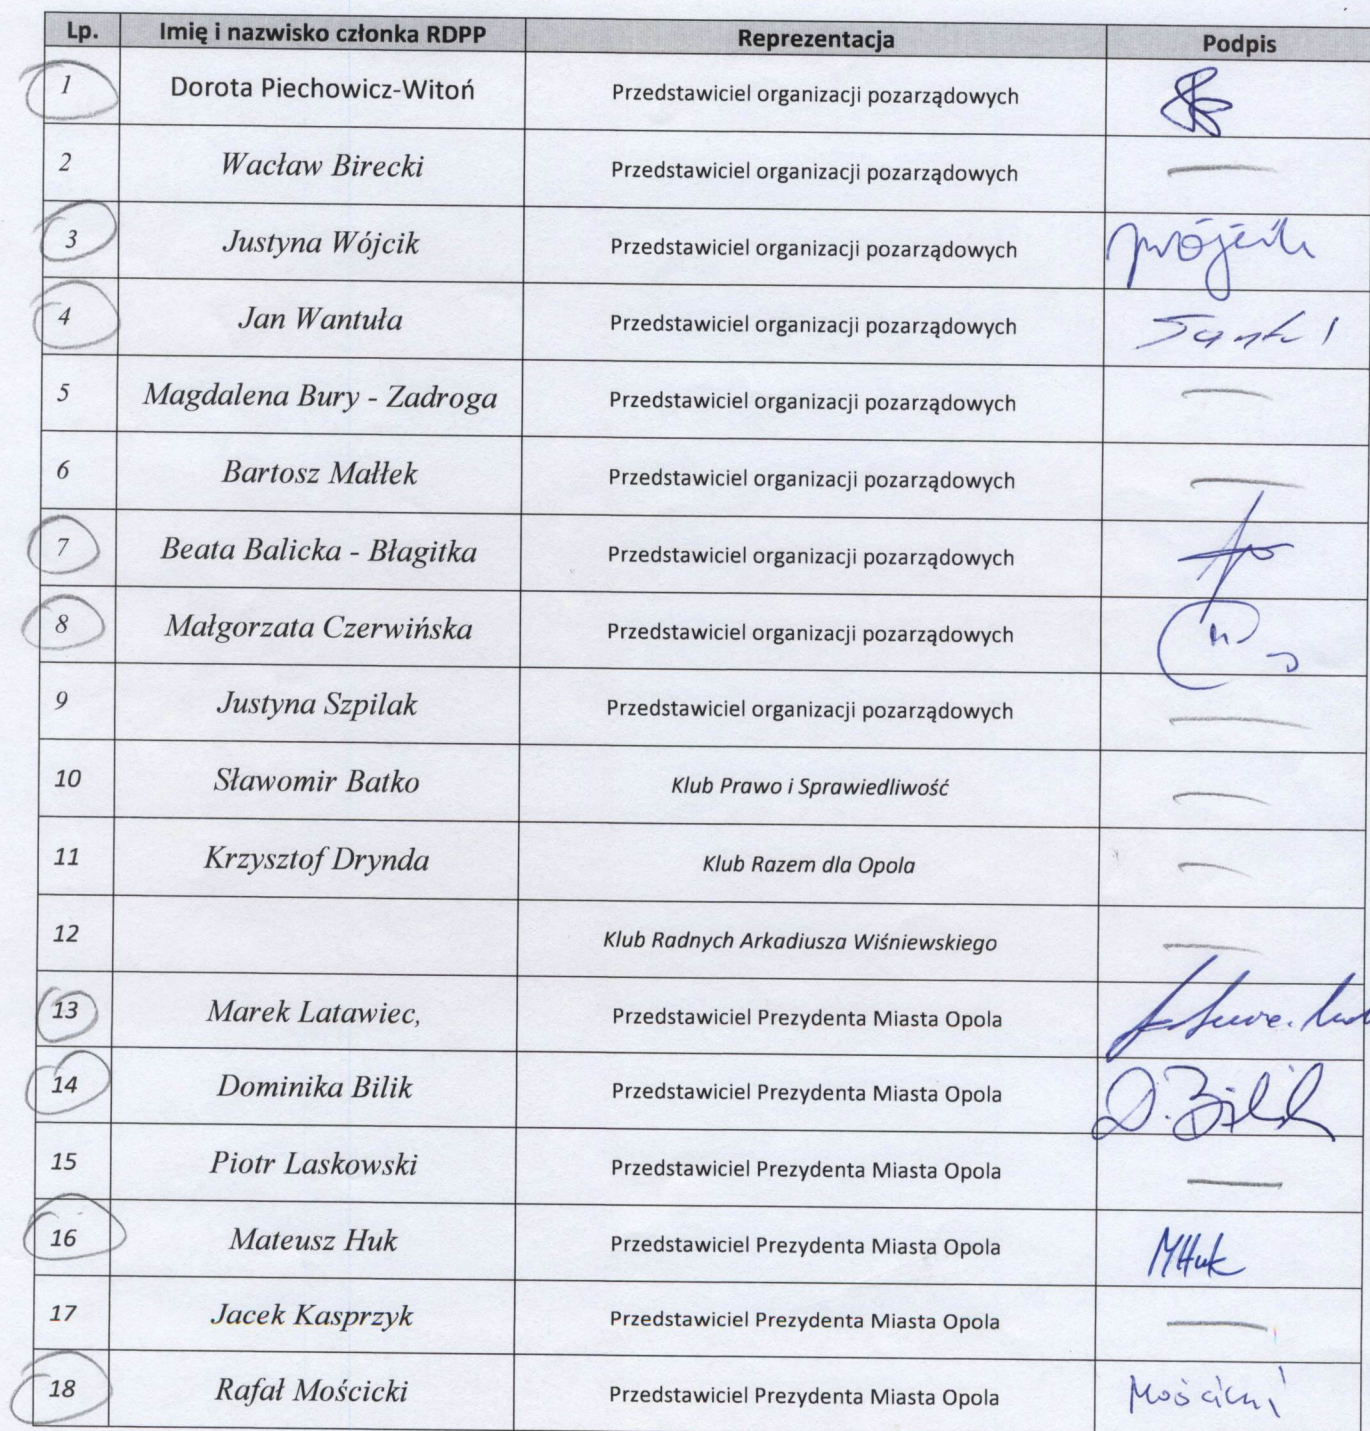 Lp. Imię i nazwisko członka RDPP Reprezentacja Podpis
1 Dorota Piechowicz-Witoń Przedstawiciel organizacji pozarządowych
2 Wacław Birecki Przedstawiciel organizacji pozarządowych —
3 Justyna Wójcik Przedstawiciel organizacji pozarządowych
4 Jan Wantuła Przedstawiciel organizacji pozarządowych
5 Magdalena Bury - Zadroga Przedstawiciel organizacji pozarządowych —
6 Bartosz Małłek Przedstawiciel organizacji pozarządowych —
7 Beata Balicka - Błagitka Przedstawiciel organizacji pozarządowych
8 Małgorzata Czerwińska Przedstawiciel organizacji pozarządowych
9 Justyna Szpilak Przedstawiciel organizacji pozarządowych —
10 Sławomir Batko Klub Prawo i Sprawiedliwość —
11 Krzysztof Drynda Klub Razem dla Opola —
12 Klub Radnych Arkadiusza Wiśniewskiego —
13 Marek Latawiec, Przedstawiciel Prezydenta Miasta Opola
14 Dominika Bilik Przedstawiciel Prezydenta Miasta Opola D. Bilik
15 Piotr Laskowski Przedstawiciel Prezydenta Miasta Opola —
16 Mateusz Huk Przedstawiciel Prezydenta Miasta Opola MHuk
17 Jacek Kasprzyk Przedstawiciel Prezydenta Miasta Opola —
18 Rafał Mościcki Przedstawiciel Prezydenta Miasta Opola Mościcki